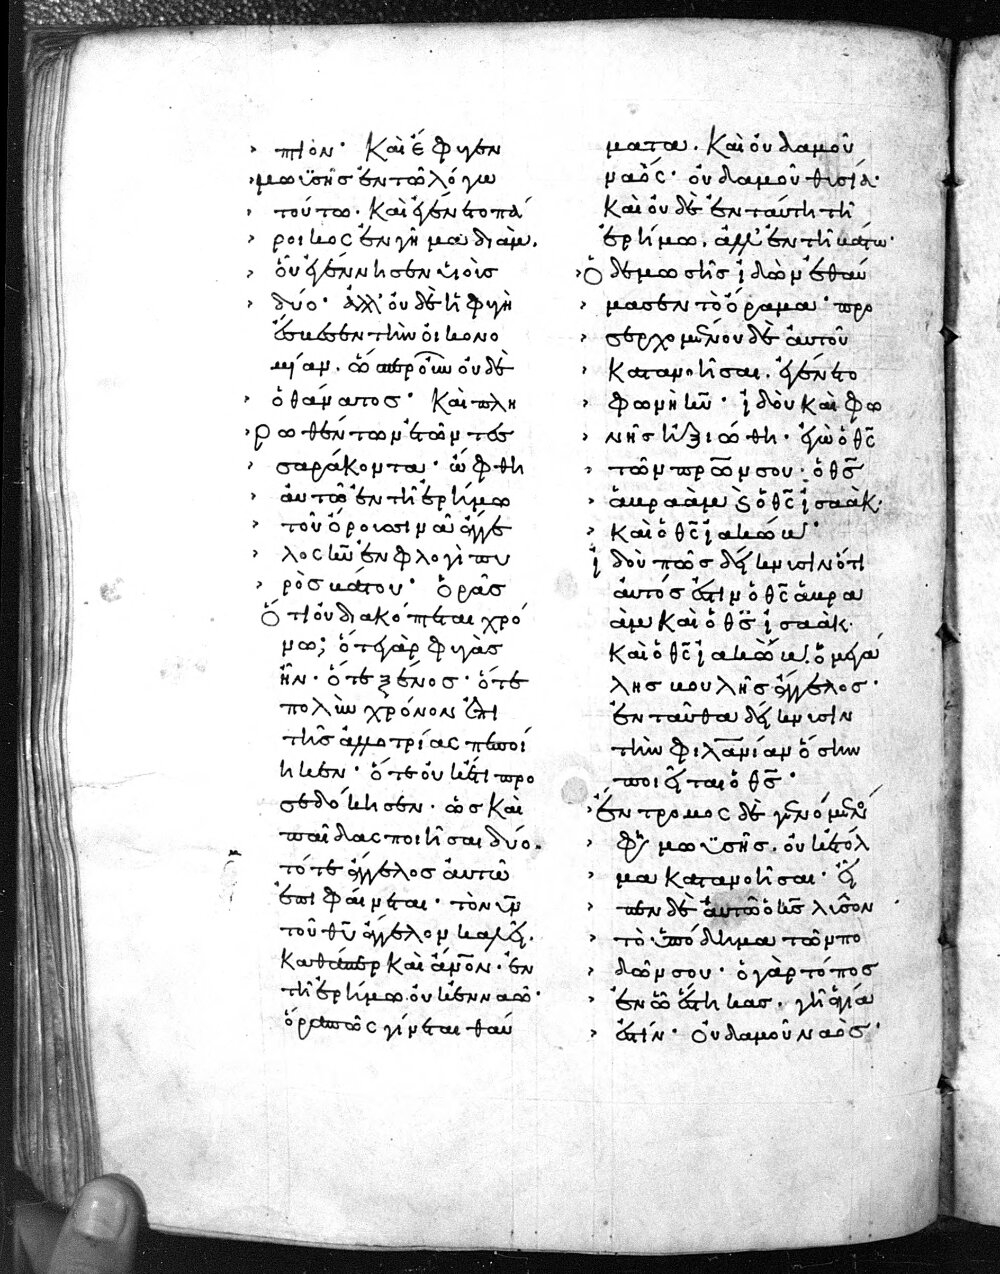 πτιον· Καὶ ἔφυγεν
μωϋσῆς ἐν τῶ λόγω
τούτω· Καὶ ἐγένετο πά
ροικος ἐν γῆ μαδιάμ.
οὗ ἐγέννησεν υἱοὺς
δύο· ἀλλ' οὐδὲ ἡ φυγὴ
ἔσβεσεν τὴν οἰκονο
μίαν. ὥσπερ οὖν οὐδὲ
ὁ θάνατος· Καὶ πλη
ρωθέντων ἐτῶν τεσ
σαράκοντα· ὤφθη
αὐτῶ ἐν τῆ ἐρήμω
τοῦ ὄρους σινᾶ ἄγγε
λος κυ ἐν φλογὶ πυ
ρὸς βάτου· ὁρᾶς
ὅτι οὐ διακόπτεται χρό
νω; ὅτε γὰρ φυγὰς
ἦν· ὅτε ξένος· ὅτε
πολὺν χρόνον ἐπὶ
τῆς ἀλλοτρίας πεποί
ηκεν· ὅτε οὐκέτι προ
σεδόκησεν· ὡς Καὶ
παῖδας ποιῆσαι δύο.
τότε ἄγγελος αὐτῶ
ἐπιφαίνεται· τὸν υν
τοῦ θυ ἄγγελον καλεῖ.
Καθάπερ Καὶ ανον· ἐν
τῆ ἐρήμω. οὐκ ἐν ναῶ·
ὅρα πῶς γίνεται θαύ
ματα. Καὶ οὐδαμοῦ
ναός· οὐδαμοῦ θυσία·
Καὶ οὐδὲ ἐν ταύτη τῆ
ἐρήμω. ἀλλ' ἐν τῆ βάτω·
ὁ δὲ μωσῆς ἰδὼν ἐθαύ
μασεν τὸ ὅραμα· προ
σερχομένου δὲ αὐτοῦ
Κατανοῆσαι. ἐγένετο
φωνὴ κυ· ἰδοὺ Καὶ φω
νῆς ἠξιώθη· ἐγὼ ὁ θς
τῶν πρων σου· ὁ θς
ἀβραὰμ ϗ ὁ θς ἰσαάκ·
Καὶ ὁ θς ἰακώβ·
ἰδοὺ πῶς δείκνυσιν ὅτι
αὐτός ἐστιν ὁ θς ἀβρα
ὰμ Καὶ ὁ θς ἰσαάκ·
Καὶ ὁ θς ἰακώβ. ὁ μεγά
λης βουλῆς ἄγγελος·
ἐνταῦθα δείκνυσιν
τὴν φιλανίαν ὅσην
ποιεῖται ὁ θς·
ἔντρομος δὲ γενόμενός
φη μωϋσῆς. οὐκ ἐτόλ
μα Κατανοῆσαι· εἶ
πεν δὲ αὐτῶ ὁ κς λῦσον
τὸ ὑπόδημα τῶν πο
δῶν σου· ὁ γὰρ τόπος
ἐν ὧ ἕστηκας. γῆ ἁγία
ἐστίν· οὐδαμοῦ ναός·